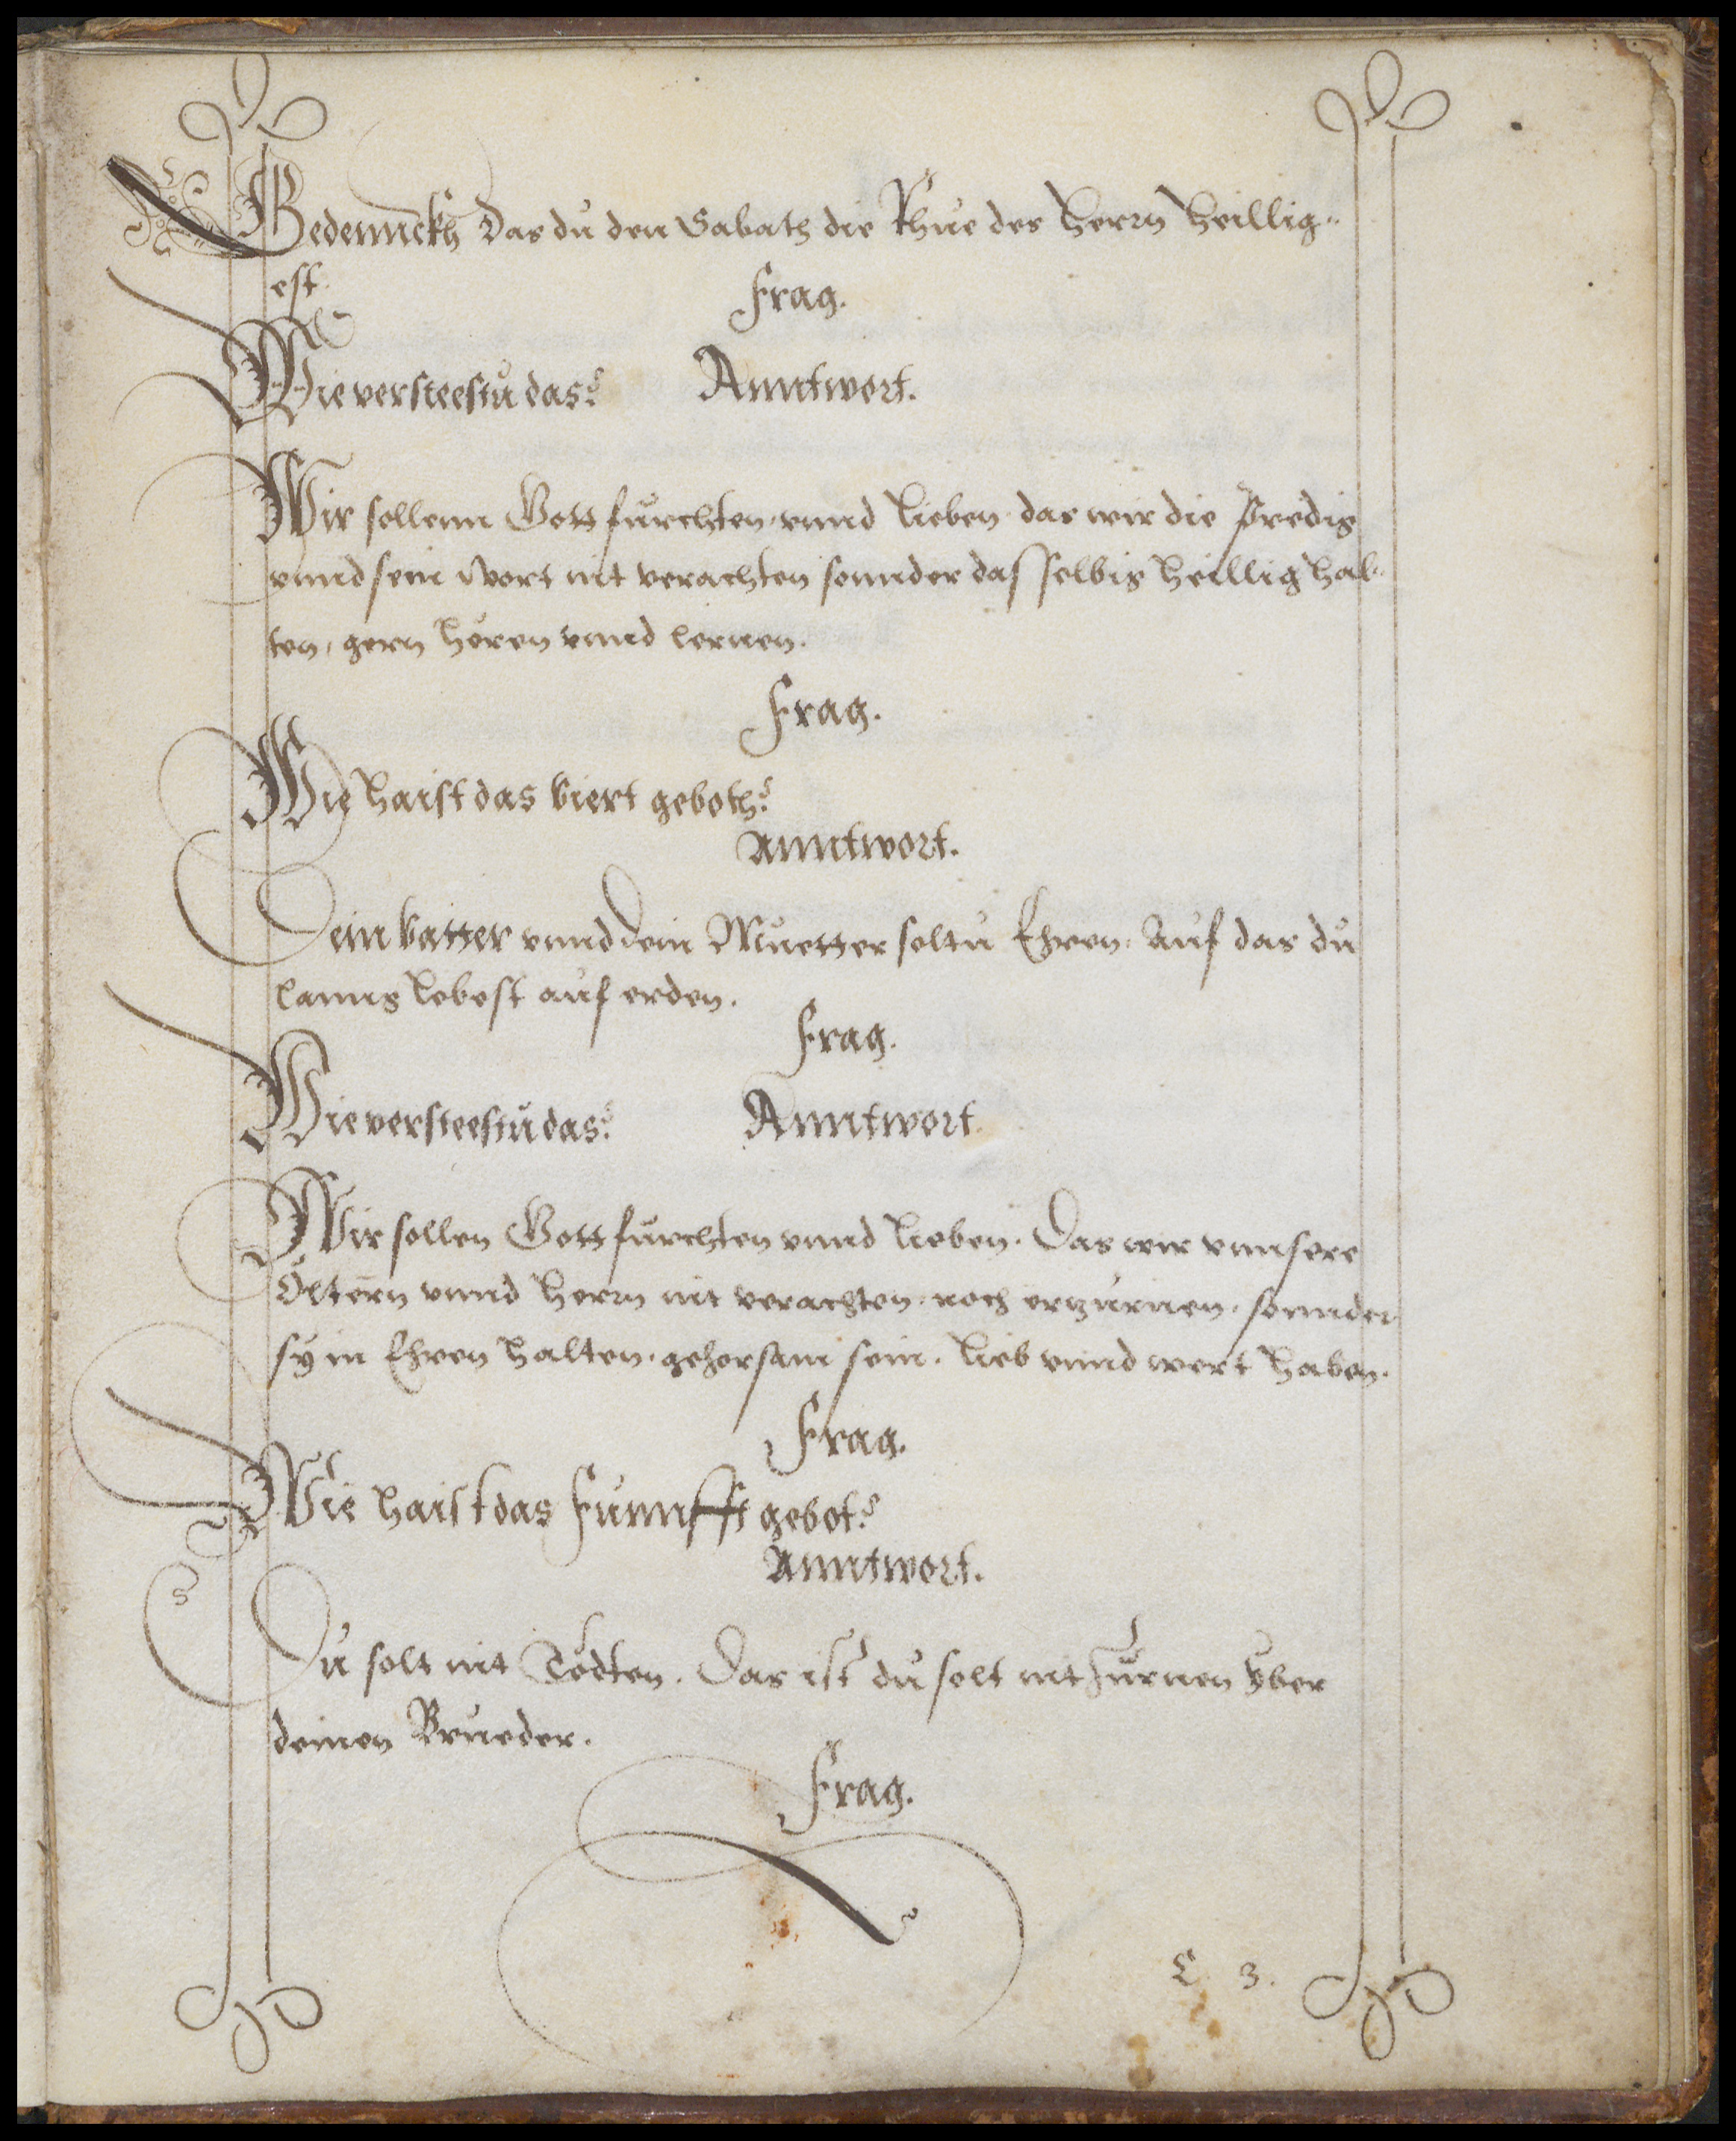 Bedennckh Das du den Sabath die Rhue des Herrn heillig-
est.
Frag.
Wie versteestu das?
Anntwort.
Wir sollenn Gott furchten, vnnd lieben, das wir die predig
vnnd sein wort nit verachten sonnder dasselbig heillig hal-
ten, gern hören vnnd lernen.
Frag.
Wie haist das viert geboth?
Anntwort.
Dein vatter vnnd dein Muetter soltu Ehren. Auf das du
lanng lebest auf erden.
Frag.
Wie versteestu das?
Anntwort.
Wir sollen Gott furchten vnnd lieben. Das wir vnnsere
Öltern vnnd herrn nit verachten, noch erzurnen, sonnder
sy in Ehren halten, gehorsam sein, lieb vnnd wert haben.
Frag.
Wie haist das Funnfft gebot?
Anntwort.
Du solt nit Tödten. Das ist du solt nit zurnen yber
deinen Brueder.
Frag.
C 3.